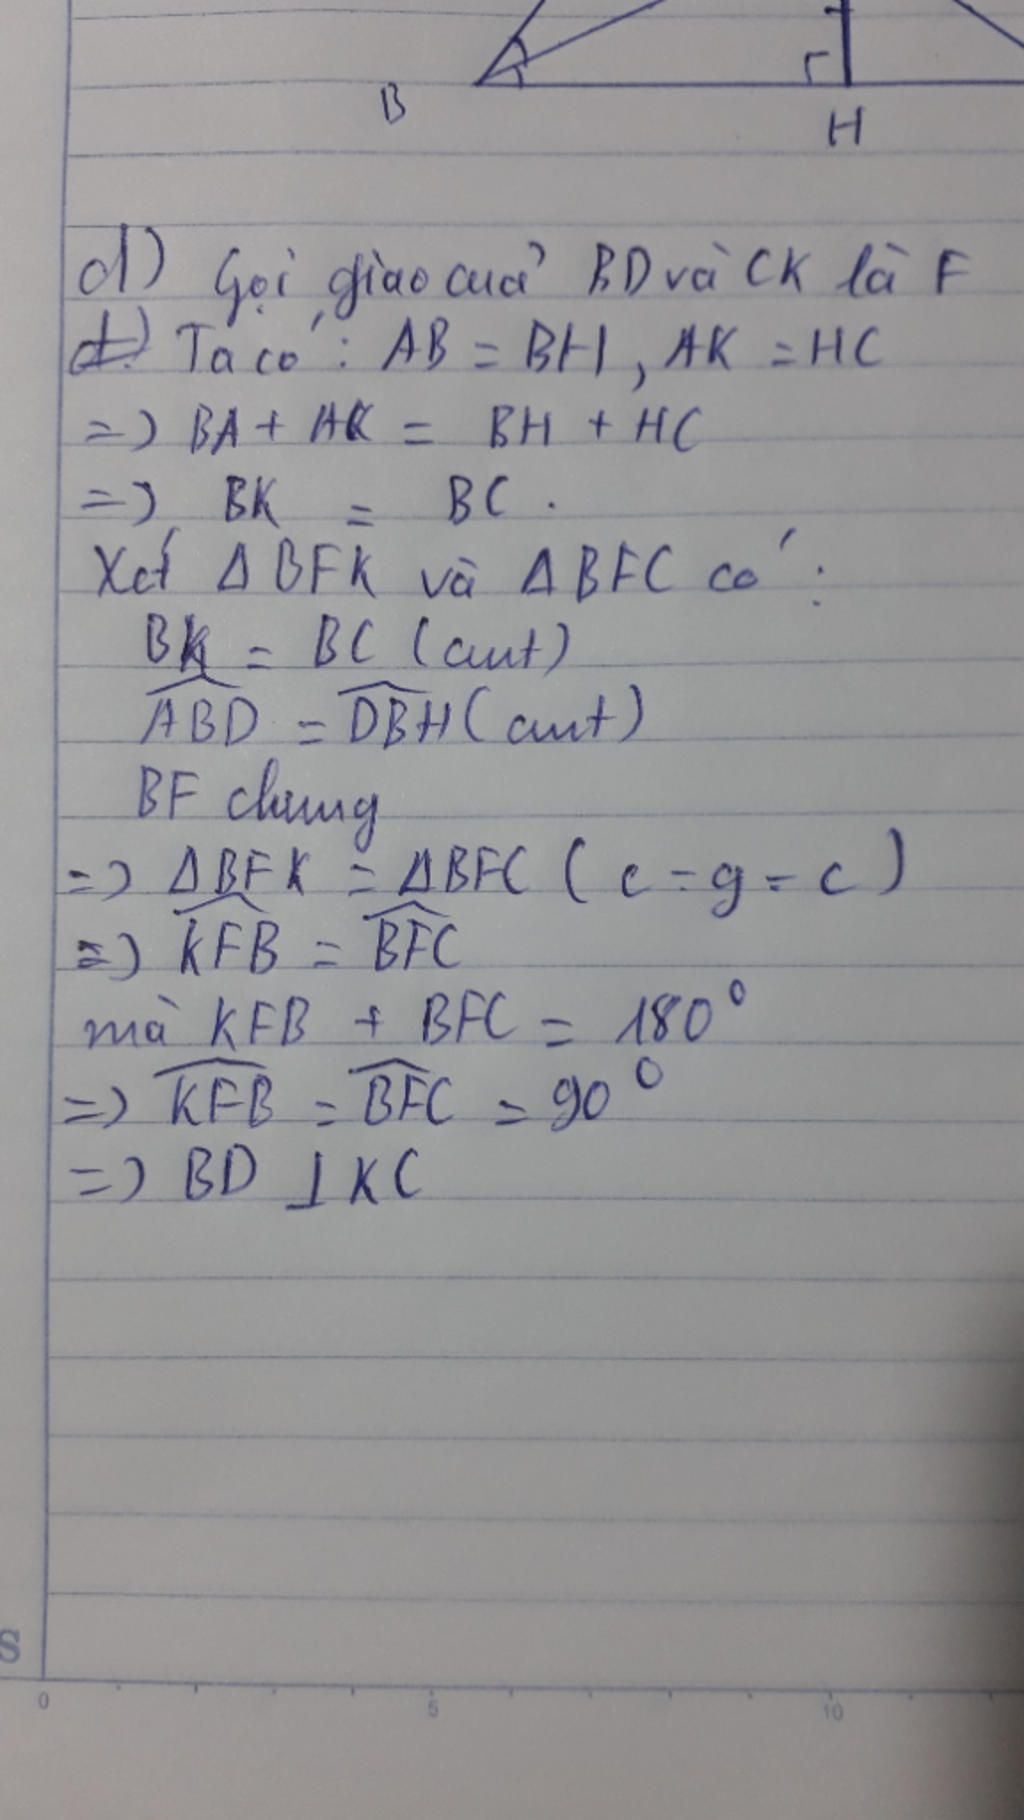 B
H
d) Gọi giao cuả BD và CK là F
Ta có : AB = BH, AK = HC
=) BA + AK = BH + HC
=) BK = BC .
Xét Δ BFK và Δ BFC có :
BK = BC (cmt)
ABD = DBH (cmt)
BF chung
=) ΔBFK = ΔBFC ( c - g - c )
=) KFB = BFC
mà KFB + BFC = 180°
=) KFB = BFC = 90°
=) BD ⊥ KC
S
0 5 10